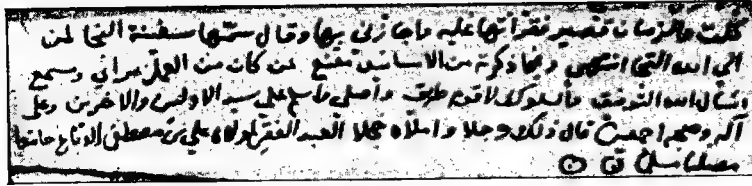 فكلت والزمان تقصير فقرأتها عليه واجازني بها وقال سمها سفينة النجا لمن
الى الله التجا انتهى وبما ذكرته من الاسانيد مقنع لمن كان من العمل ومسمع
اسأل الله التوفيق والسلوك لاقوم طريق واصلي واسلم على سيد الاولين والاخرين وعلى
آله وصحبه اجمعين قال ذلك وجلا واملاه خجلا العبد الفقير علي بن مصطفى الدباغ حامدا
مصليا مسلما